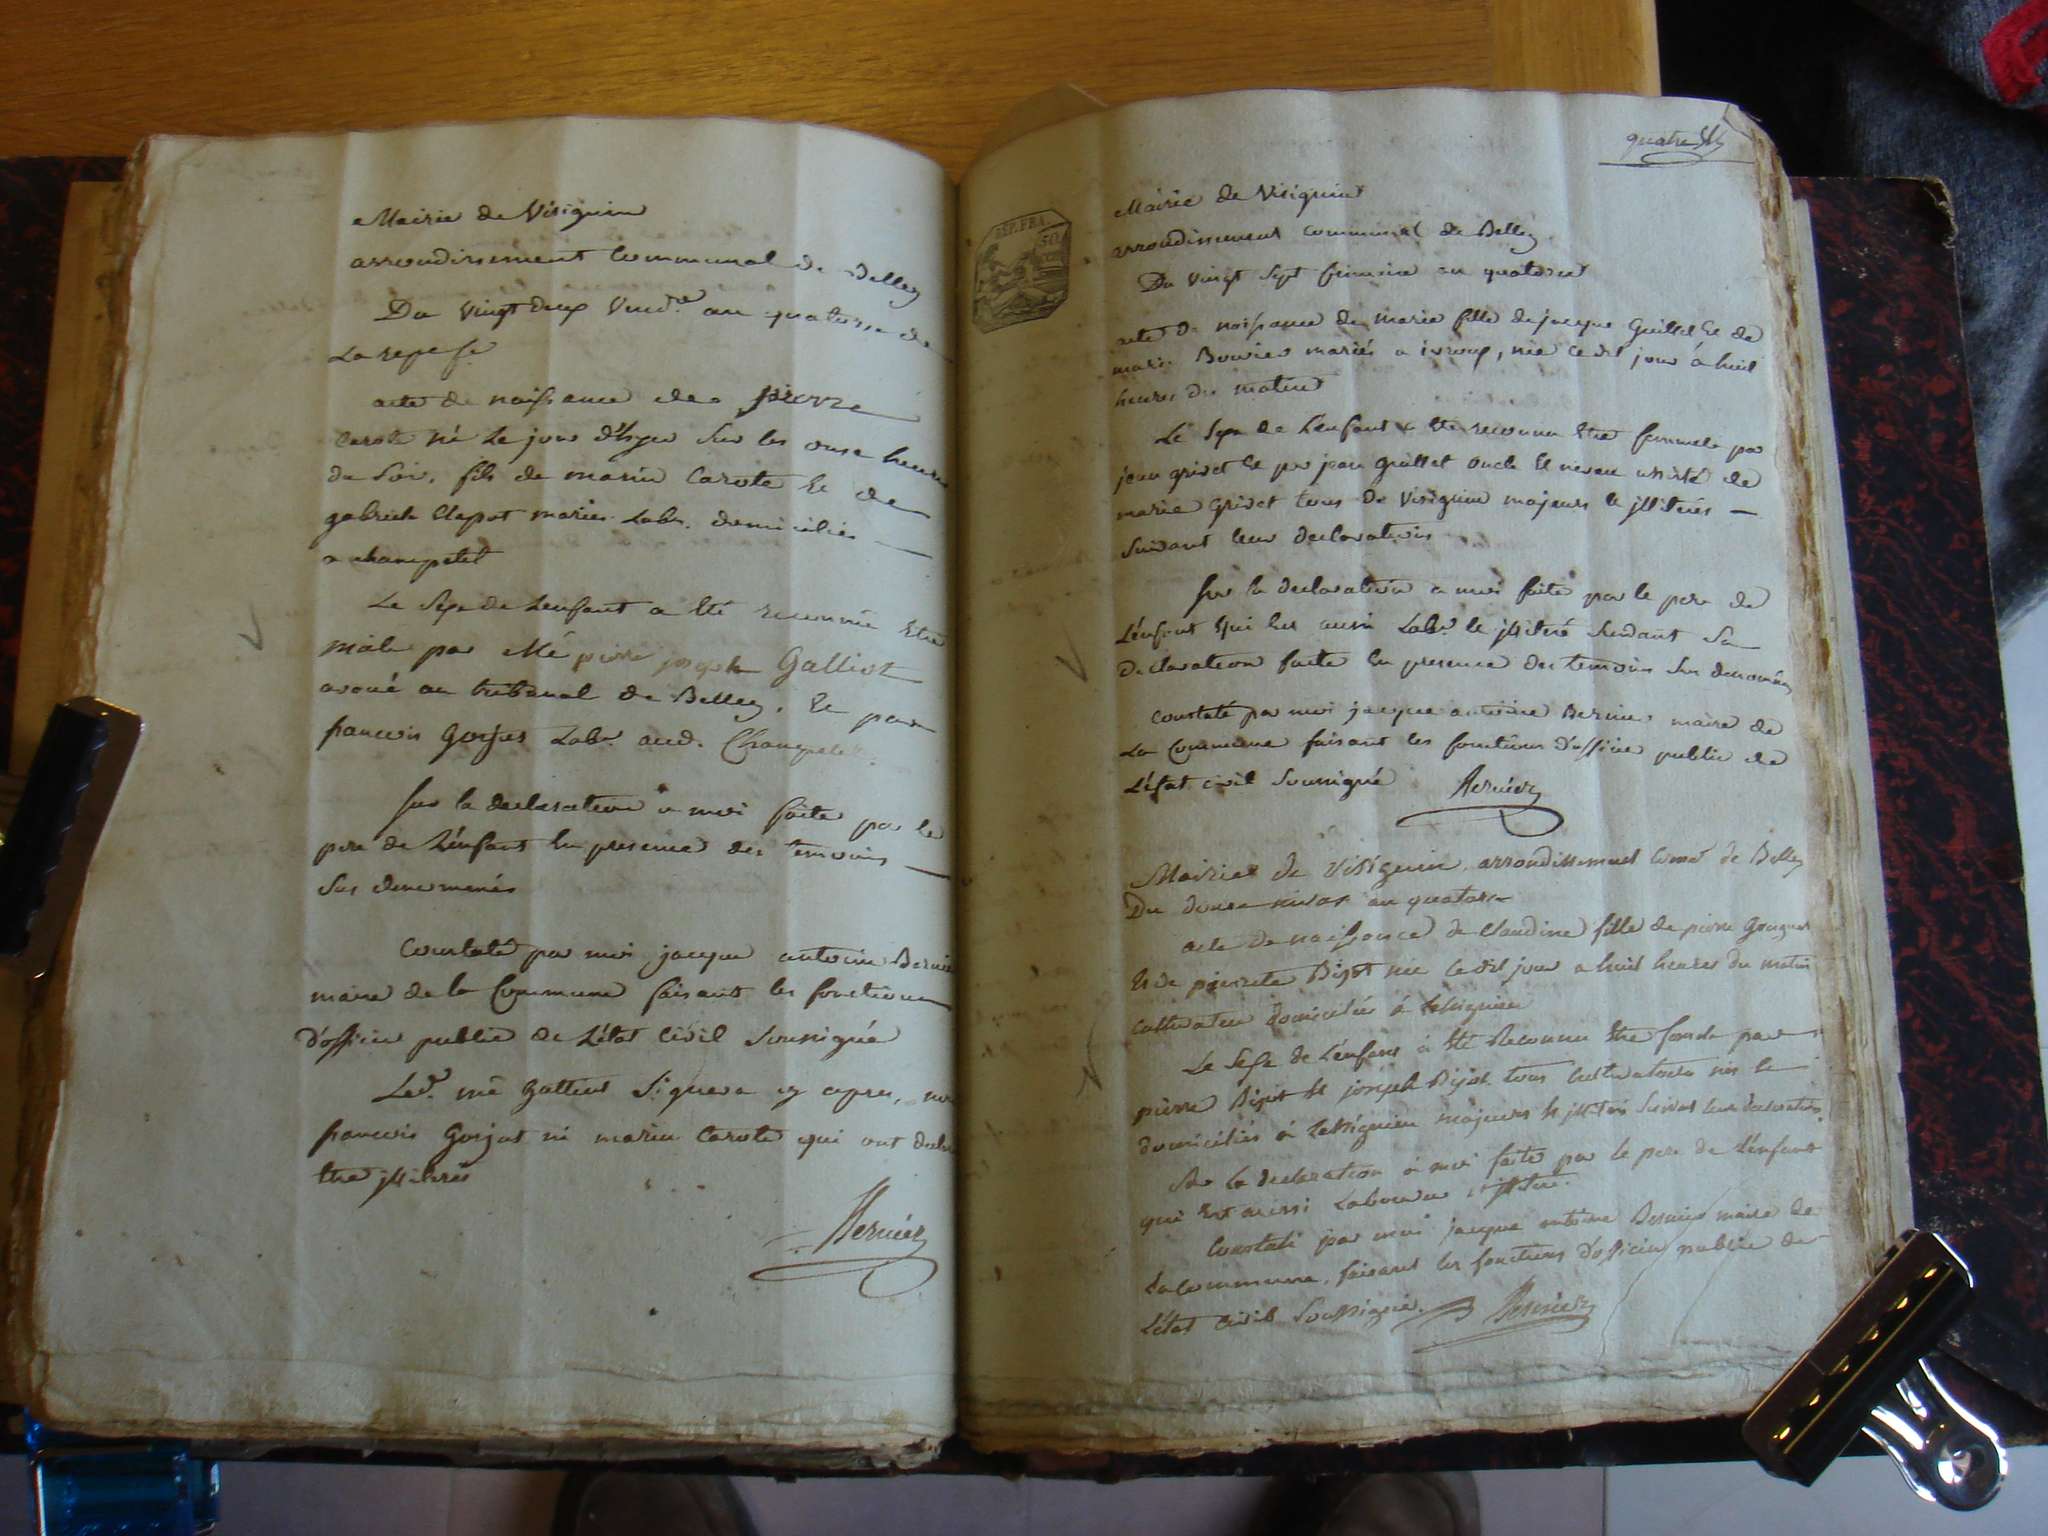 Mairie de Visignin
arrondissement Communal de Belley
Du vingt deux Vend.re an quatorze de
La rep. f.se
acte de naissance de pierre
Carote né Le jour d'hyer Sur les onse heures
du Soir, fils de marin Carote Et de
gabriele Clapot mariés Labr. domiciliés —
a champetel
Le Sexe de Lenfant a Eté reconnu Etre
male par Me pierre joseph Galliot
avoué au tribunal de Belley, Et par
francois Gorjut Labr. aud. Champetel.
Sur la declaration a moi faite par le
pere de L'énfant En presence des temoins —
Sus denommés
Constaté par moi jacque antoine Bernier
maire de la Commune faisant les fonctions
d'officier public de L'état Civil Soussigné
Led. me Galliot Signera cy apres, non
francois Gorjut ni marin Carote qui ont declaré
Etre illiterés
Bernier
quatre
REP. FRA.
50
Mairie de Visignin
arrondissement communal de Belley
Du vingt Sept frimaire an quatorze
acte de naissance de marie fille de jacque Guillet Et de
marie Bouvier mariés a, née ce dit jour à huit
heures du matin
Le Sexe de L'enfant a Eté reconnu Etre femmele par
jean grivet Et par jean Guillet oncle Et neveu assisté de
marie Grivet tous de Visignin majeurs Et illiterés —
Suivant leur declaration
Sur la declaration a moi faite par le pere de
L'énfant qui Est aussi Labr. Et illiteré Suivant Sa
declaration faite En presence des temoins Sus denommés
Constaté par moi jacque antoine Bernier maire de
La Commune faisant les fonctions d'officier public de
L'état civil Soussigné Bernier
Mairie de Visignin, arrondissement comal de Belley
Du douze nivos an quatorze
acte de naissance de Claudine fille de pierre
Et de pierrete Bijot née ce dit jour a huit heures du matin
Cultivateur domiciliés à
Le Sexe de L'énfant à Eté Reconnu Etre femele par
pierre Bijot Et joseph Bijot tous Cultivateurs
domiciliés à majeurs Et illiterés Suivant leur declaration
Sur la declaration à moi faite par le pere de L'énfant
qui Est aussi Laboureur illiteré.
Constaté par moi jacque antoine Bernier maire de
La Commune, faisant les fonctions d'officier public de
L'état Civil Soussigné. Bernier